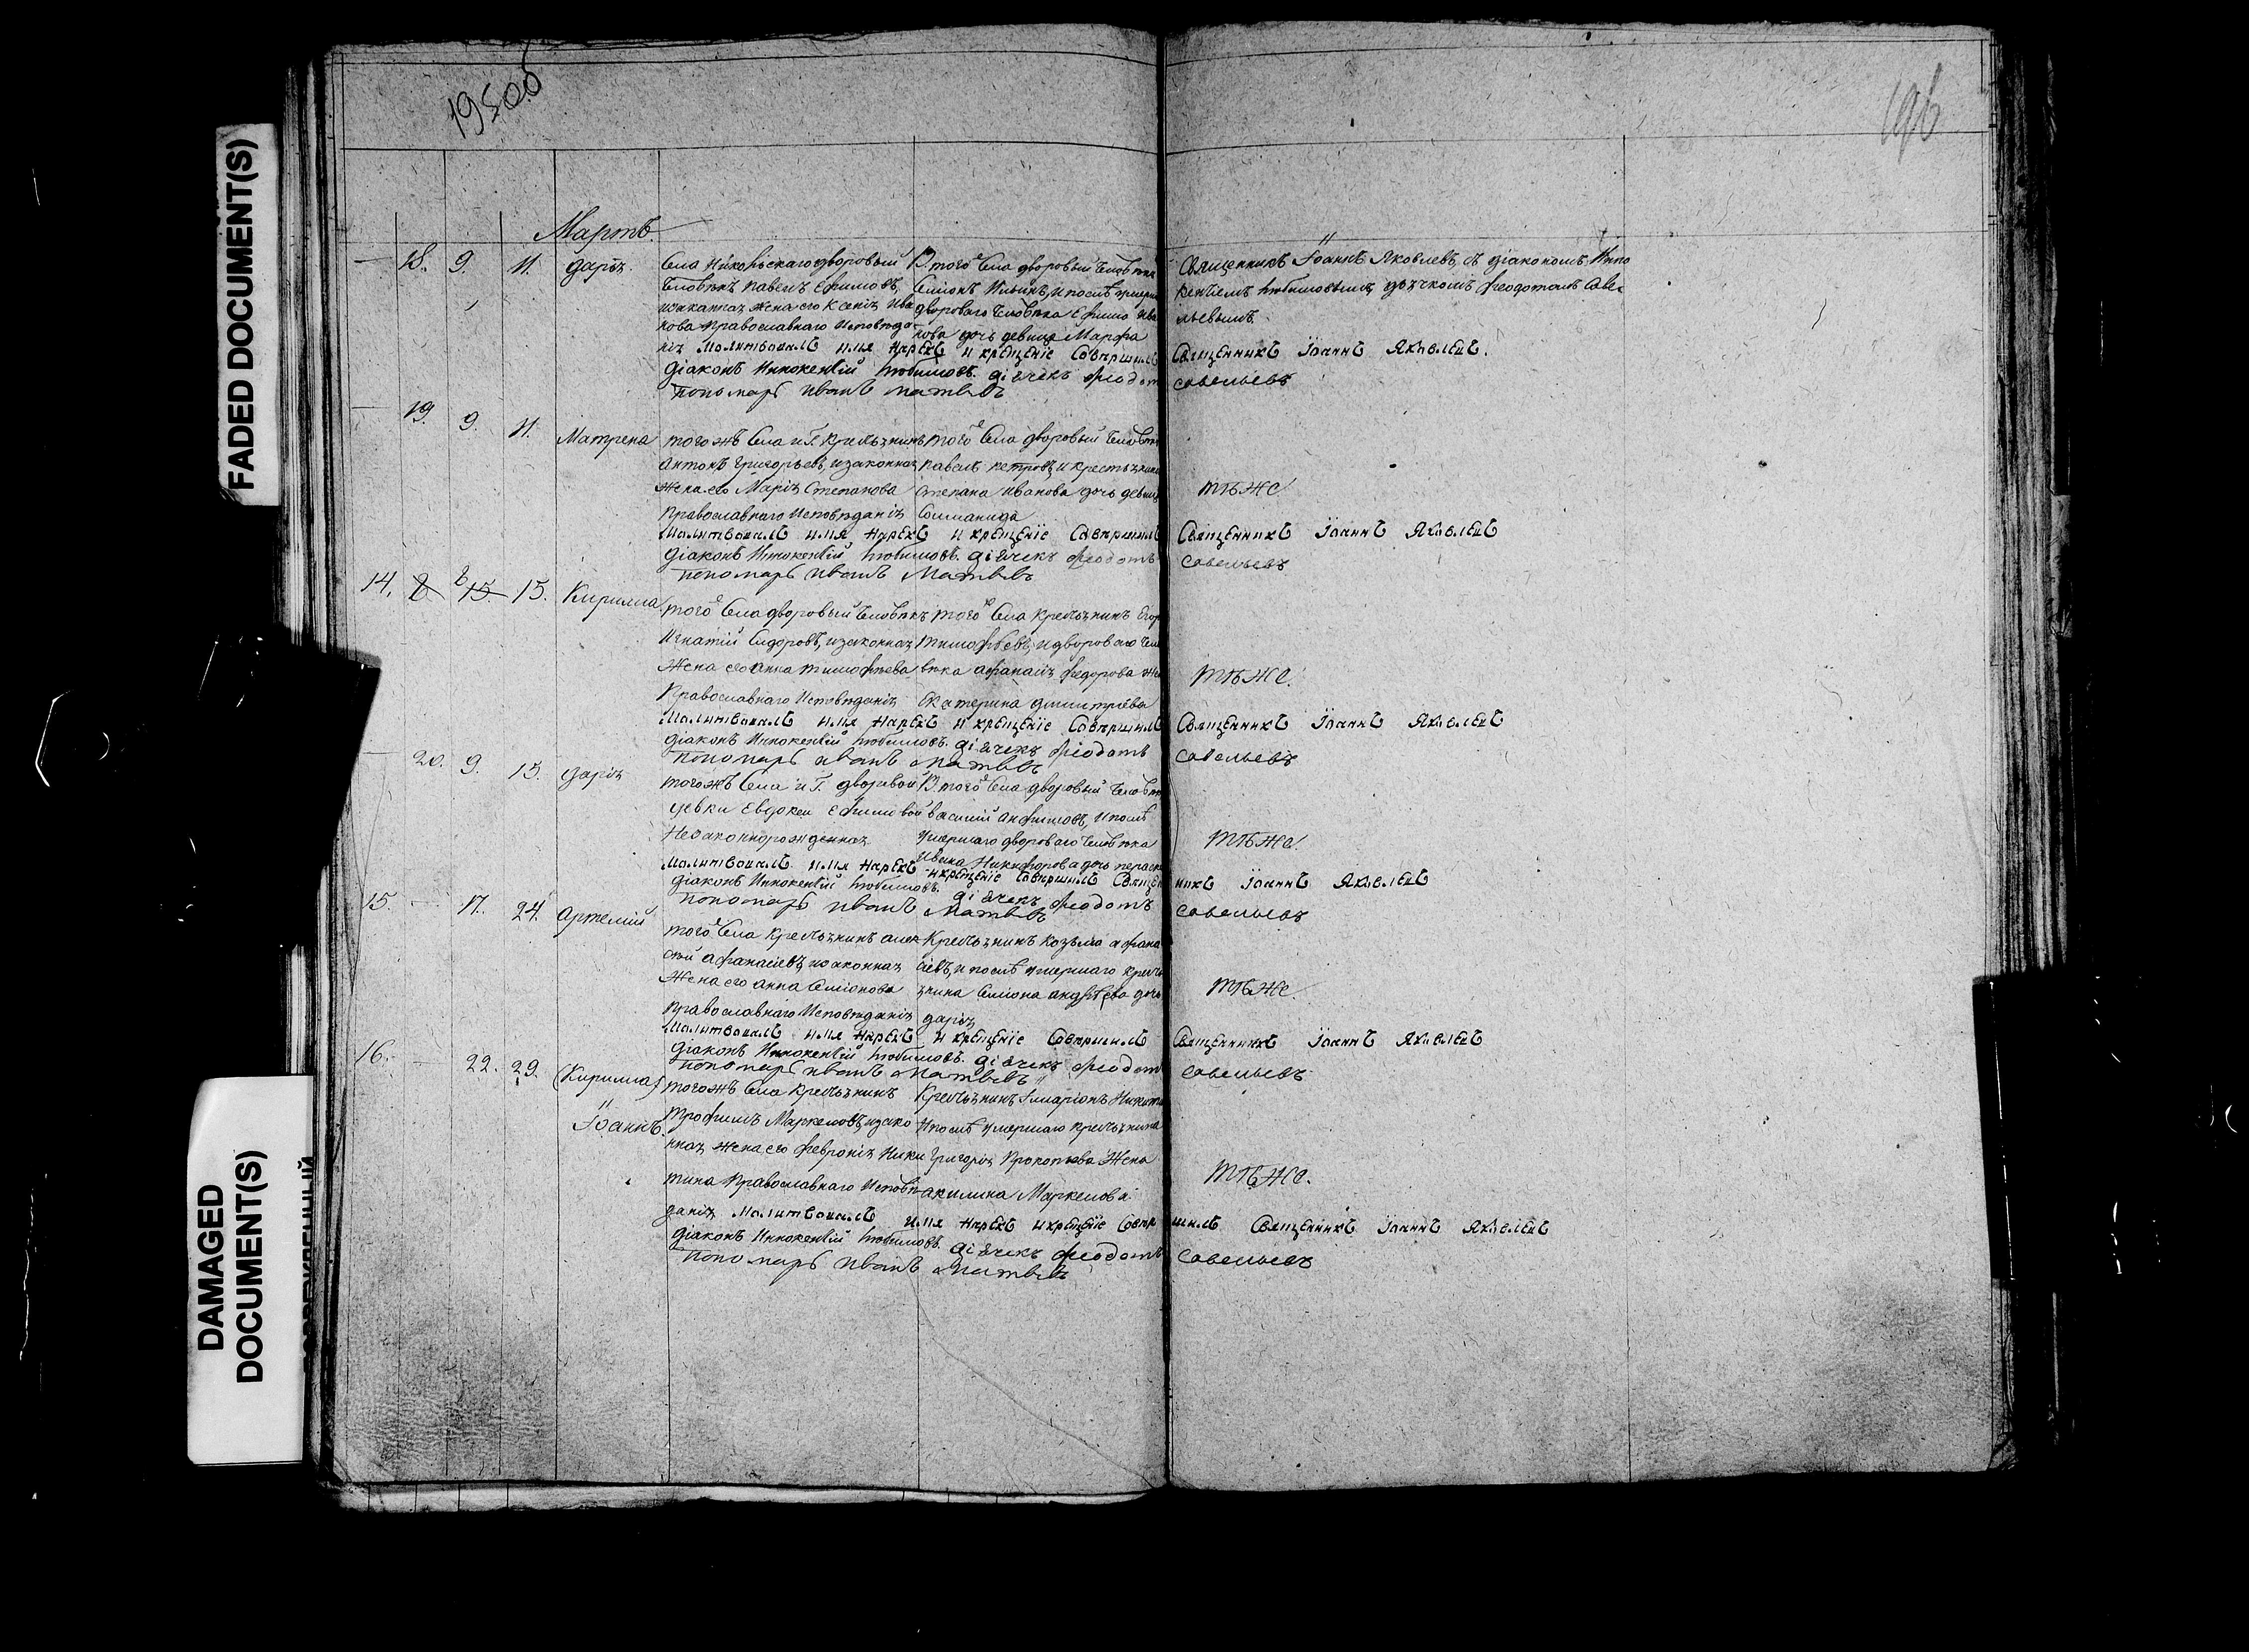 FADED DOCUMENT(S)
DAMAGED DOCUMENT(S)
195 об
196
Мартъ.
18. 9. 11. Дарья.
Села Никольскаго дворовый
человѣкъ Павелъ Ефимовъ,
и законная жена его Ксенія Ива
нова Православнаго Исповѣда
нія
В. того села дворовый человѣкъ
Симіонъ Ильинъ, и послѣ умерш
двороваго человѣка Ефима Ива
нова дочь девица Марфа
Священникъ Іоаннъ Яковлевъ, съ діакономъ Инно
кентіемъ Любимовымъ, дьячкомъ Феодотомъ Саве
льевымъ.
Молитвовалъ имя нарекъ и крещеніе совершилъ Священникъ Іоаннъ Яковлевъ.
Діаконъ Иннокентій Любимовъ. Дiячекъ Феодотъ Савельевъ
Пономарь Иванъ Матвѣвъ
19. 9. 11. Матрена
того жъ села и Г. крестьянинъ
Антонъ Григорьевъ, и законная
жена его Марія Степанова
Православнаго Исповѣданія
того села дворовый человѣкъ
Павелъ Петровъ, и крестьянина
Степана Иванова дочь девица
Соломанида
тѣ же
Молитвовалъ имя нарекъ и крещеніе совершилъ Священникъ Іоаннъ Яковлевъ
Діаконъ Иннокентій Любимовъ. Дiячекъ Феодотъ Савельевъ
Пономарь Иванъ Матвѣвъ
14. 8 15. 15. Кирилла
того села дворовый человѣкъ
Игнатій Сидоровъ, и законная
жена его Анна Тимофѣева
Православнаго Исповѣданія
того села крестьянинъ Егор
Тимофѣевъ, и двороваго чело
вѣка Афанасія Федорова же
Екатерина Дмитріева
тѣ же.
Молитвовалъ имя нарекъ и крещеніе совершилъ Священникъ Іоаннъ Яковлевъ
Діаконъ Иннокентій Любимовъ. Дiячекъ Феодотъ Савельевъ
Пономарь Иванъ Матвѣвъ
20. 9. 15. Дарія
того жъ села и Г. дворовой
девки Евдокеи Ефимовой
Незаконнорожденная
В. того села дворовый человѣкъ
Василій Анфимовъ, и послѣ
умершаго двороваго человѣка
Ивана Никифорова дочь Параск
тѣ же.
Молитвовалъ имя нарекъ и крещеніе совершилъ Священникъ Іоаннъ Яковлевъ
Діаконъ Иннокентій Любимовъ. Дiячекъ Феодотъ Савельевъ
Пономарь Иванъ Матвѣвъ
15. 17. 24. Артемій
того села крестьянинъ Алек
сѣй Афанасіевъ, и законная
жена его Анна Симіонова
Православнаго Исповѣданія
Крестьянинъ Козьма Афана
сіевъ, и послѣ умершаго кресть
янина Симіона Андрѣева дочь
Дарія
тѣ же.
Молитвовалъ имя нарекъ и крещеніе совершилъ Священникъ Іоаннъ Яковлевъ
Діаконъ Иннокентій Любимовъ. Дiячекъ Феодотъ Савельевъ
Пономарь Иванъ Матвѣвъ
16. 22. 29. (Кирилла)
Іоаннъ.
того жъ села крестьянинъ
Трофимъ Маркеловъ, и зако
нная жена его Февронія Ники
тина Православнаго Исповѣ
данія
Крестьянинъ Иларіонъ Никити
и послѣ умершаго крестьянина
Григорія Прокопьева жена
Акилина Маркелова
тѣ же.
Молитвовалъ имя нарекъ и крещеніе совершилъ Священникъ Іоаннъ Яковлевъ
Діаконъ Иннокентій Любимовъ. Дiячекъ Феодотъ Савельевъ
Пономарь Иванъ Матвѣвъ